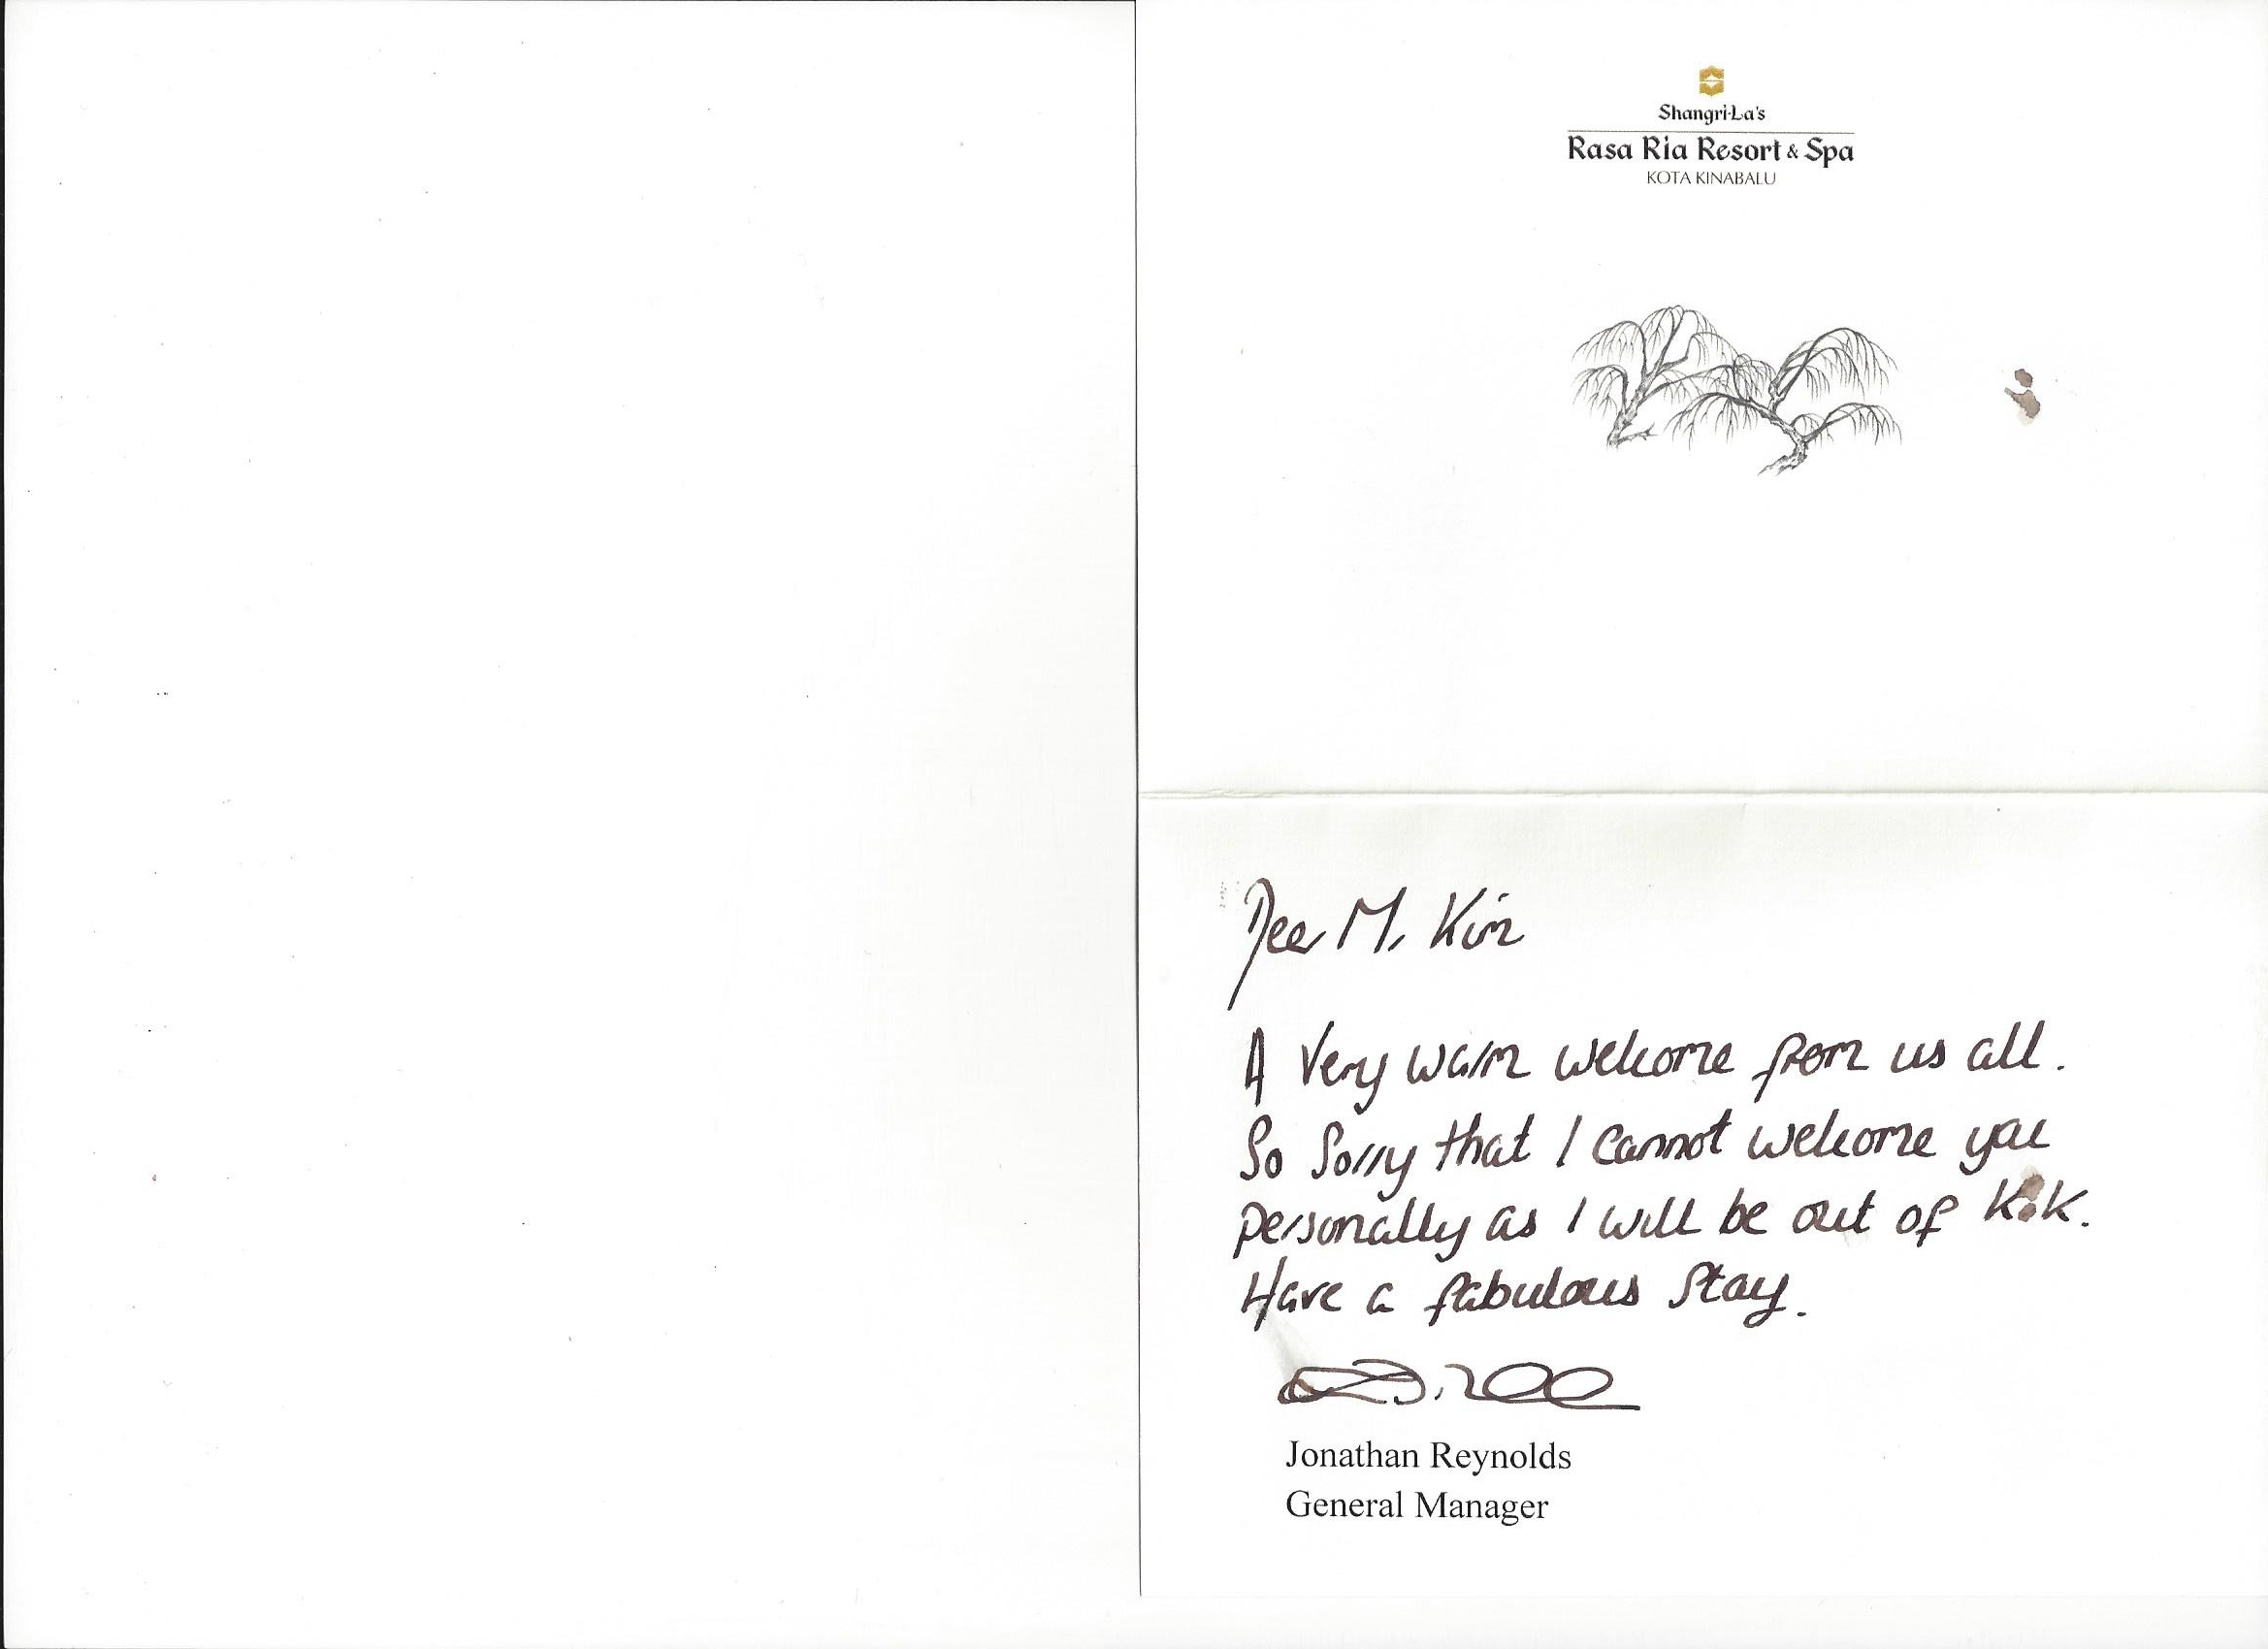 Shangri-La's
Rasa Ria Resort & Spa
KOTA KINABALU
Dear Mr. Kim
A very warm welcome from us all.
So sorry that I cannot welcome you
personally as I will be out of K.K.
Have a fabulous stay.
Jonathan Reynolds
General Manager